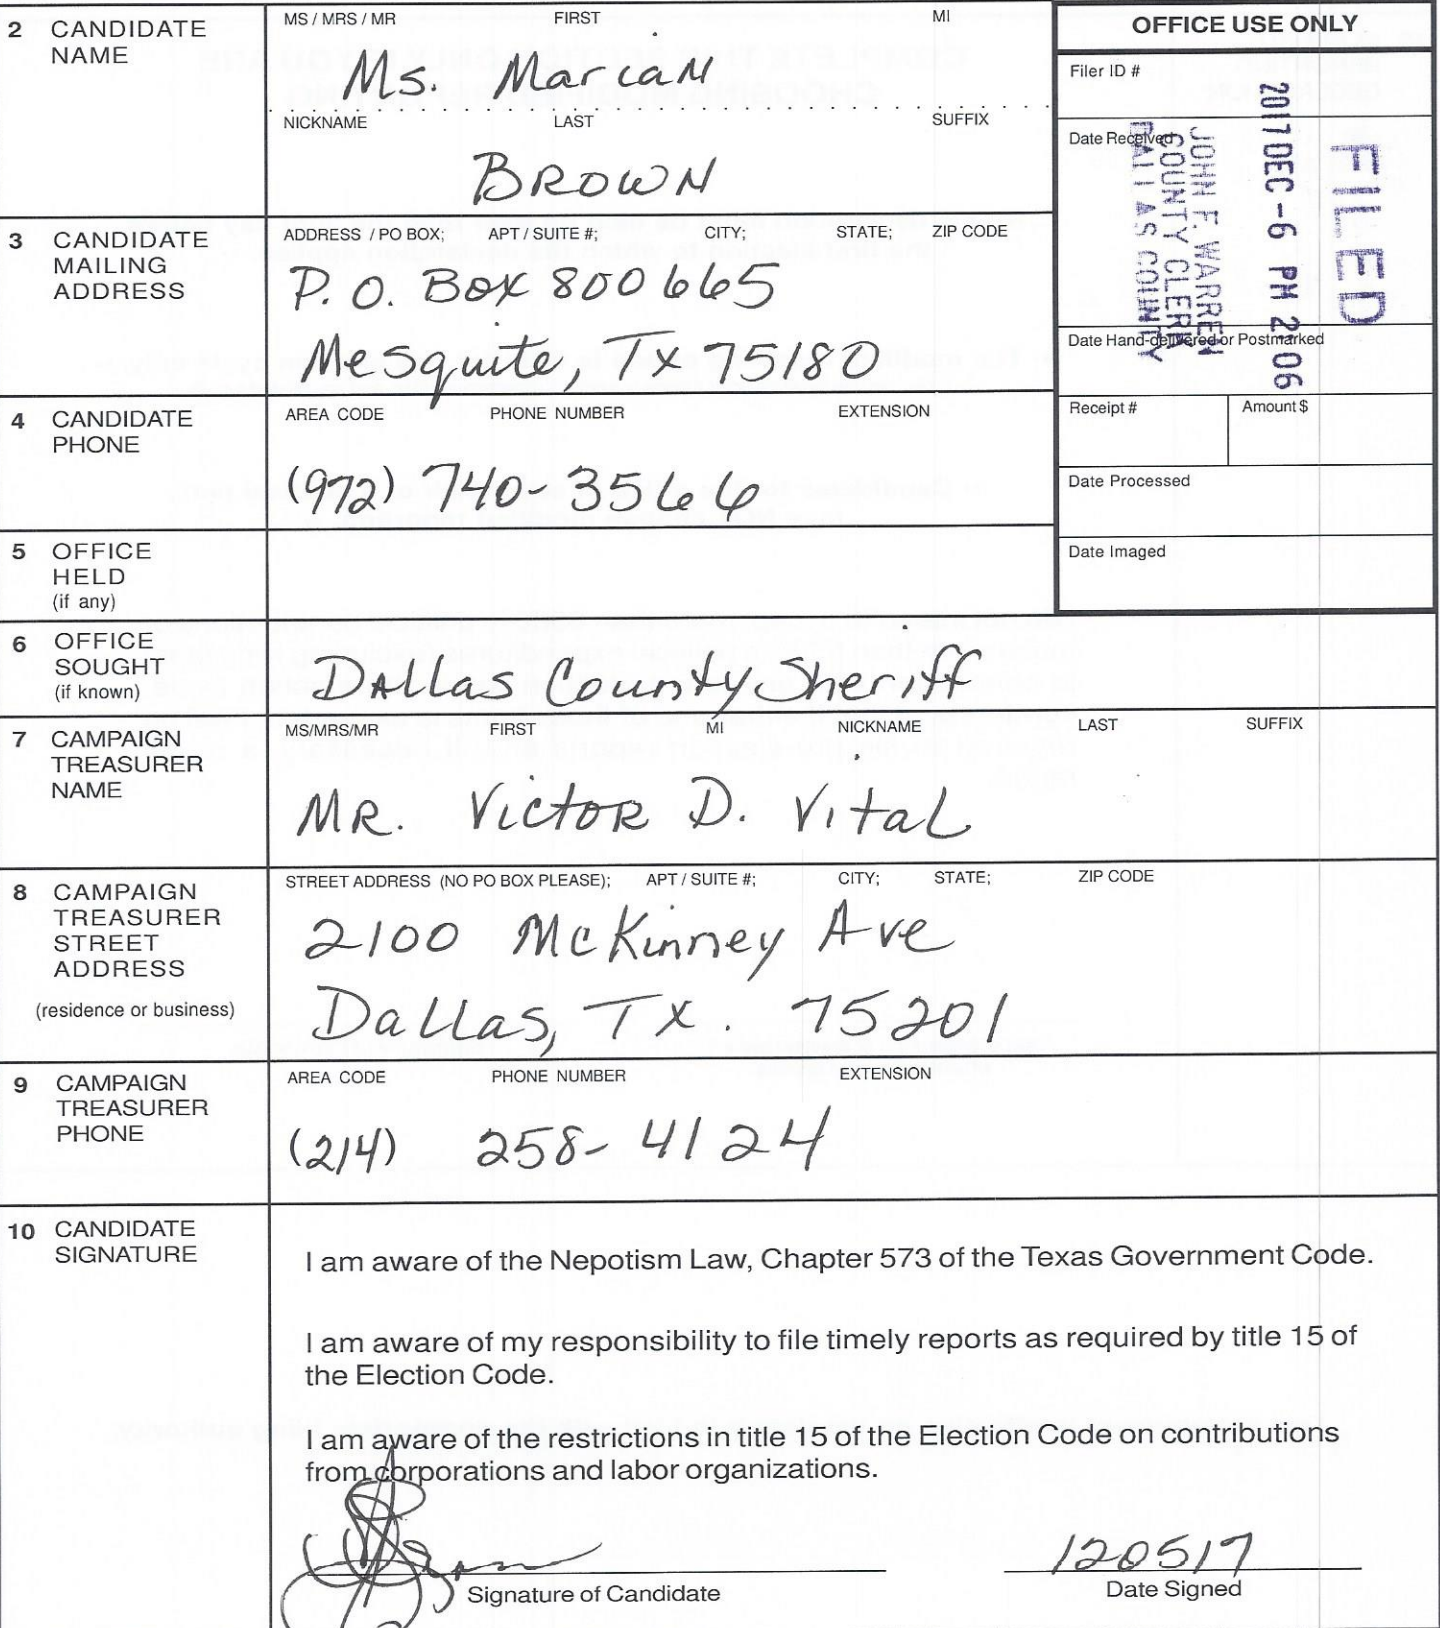 2 CANDIDATE NAME
MS / MRS / MR FIRST MI
Ms. Marian
NICKNAME LAST SUFFIX
BROWN
OFFICE USE ONLY
Filer ID #
Date Received
FILED
2017 DEC -6 PM 2:06
JOHN F. WARREN
COUNTY CLERK
DALLAS COUNTY
Date Hand-delivered or Postmarked
Receipt # Amount $
Date Processed
Date Imaged
3 CANDIDATE MAILING ADDRESS
ADDRESS / PO BOX; APT / SUITE #; CITY; STATE; ZIP CODE
P.O. Box 800665
Mesquite, Tx 75180
4 CANDIDATE PHONE
AREA CODE PHONE NUMBER EXTENSION
(972) 740-3566
5 OFFICE HELD
(if any)
6 OFFICE SOUGHT
(if known)
Dallas County Sheriff
7 CAMPAIGN TREASURER NAME
MS/MRS/MR FIRST MI NICKNAME LAST SUFFIX
MR. Victor D. Vital
8 CAMPAIGN TREASURER STREET ADDRESS
(residence or business)
STREET ADDRESS (NO PO BOX PLEASE); APT / SUITE #; CITY; STATE; ZIP CODE
2100 McKinney Ave
Dallas, Tx. 75201
9 CAMPAIGN TREASURER PHONE
AREA CODE PHONE NUMBER EXTENSION
(214) 258-4124
10 CANDIDATE SIGNATURE
I am aware of the Nepotism Law, Chapter 573 of the Texas Government Code.
I am aware of my responsibility to file timely reports as required by title 15 of
the Election Code.
I am aware of the restrictions in title 15 of the Election Code on contributions
from corporations and labor organizations.
120517
Signature of Candidate Date Signed